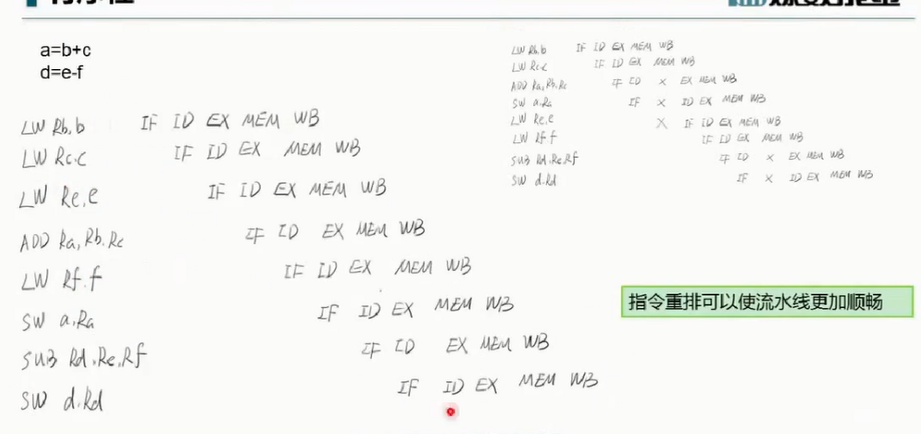 a=b+c
d=e-f
LW Rb,b IF ID EX MEM WB
LW Rc,c IF ID EX MEM WB
LW Re,e IF ID EX MEM WB
ADD Ra,Rb,Rc IF ID EX MEM WB
LW Rf,f IF ID EX MEM WB
SW a,Ra IF ID EX MEM WB
SUB Rd,Re,Rf IF ID EX MEM WB
SW d,Rd IF ID EX MEM WB
LW Rb,b IF ID EX MEM WB
LW Rc,c IF ID EX MEM WB
ADD Ra,Rb,Rc IF ID X EX MEM WB
SW a,Ra IF X ID EX MEM WB
LW Re,e X IF ID EX MEM WB
LW Rf,f IF ID EX MEM WB
SUB Rd,Re,Rf IF ID X EX MEM WB
SW d,Rd IF X ID EX MEM WB
指令重排可以使流水线更加顺畅